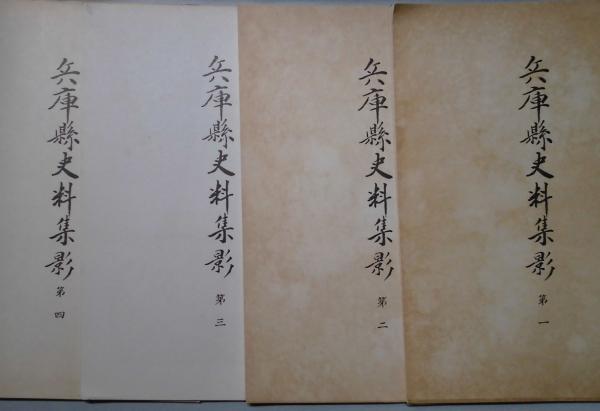 兵庫縣史料集影
第一
兵庫縣史料集影
第二
兵庫縣史料集影
第三
兵庫縣史料集影
第四